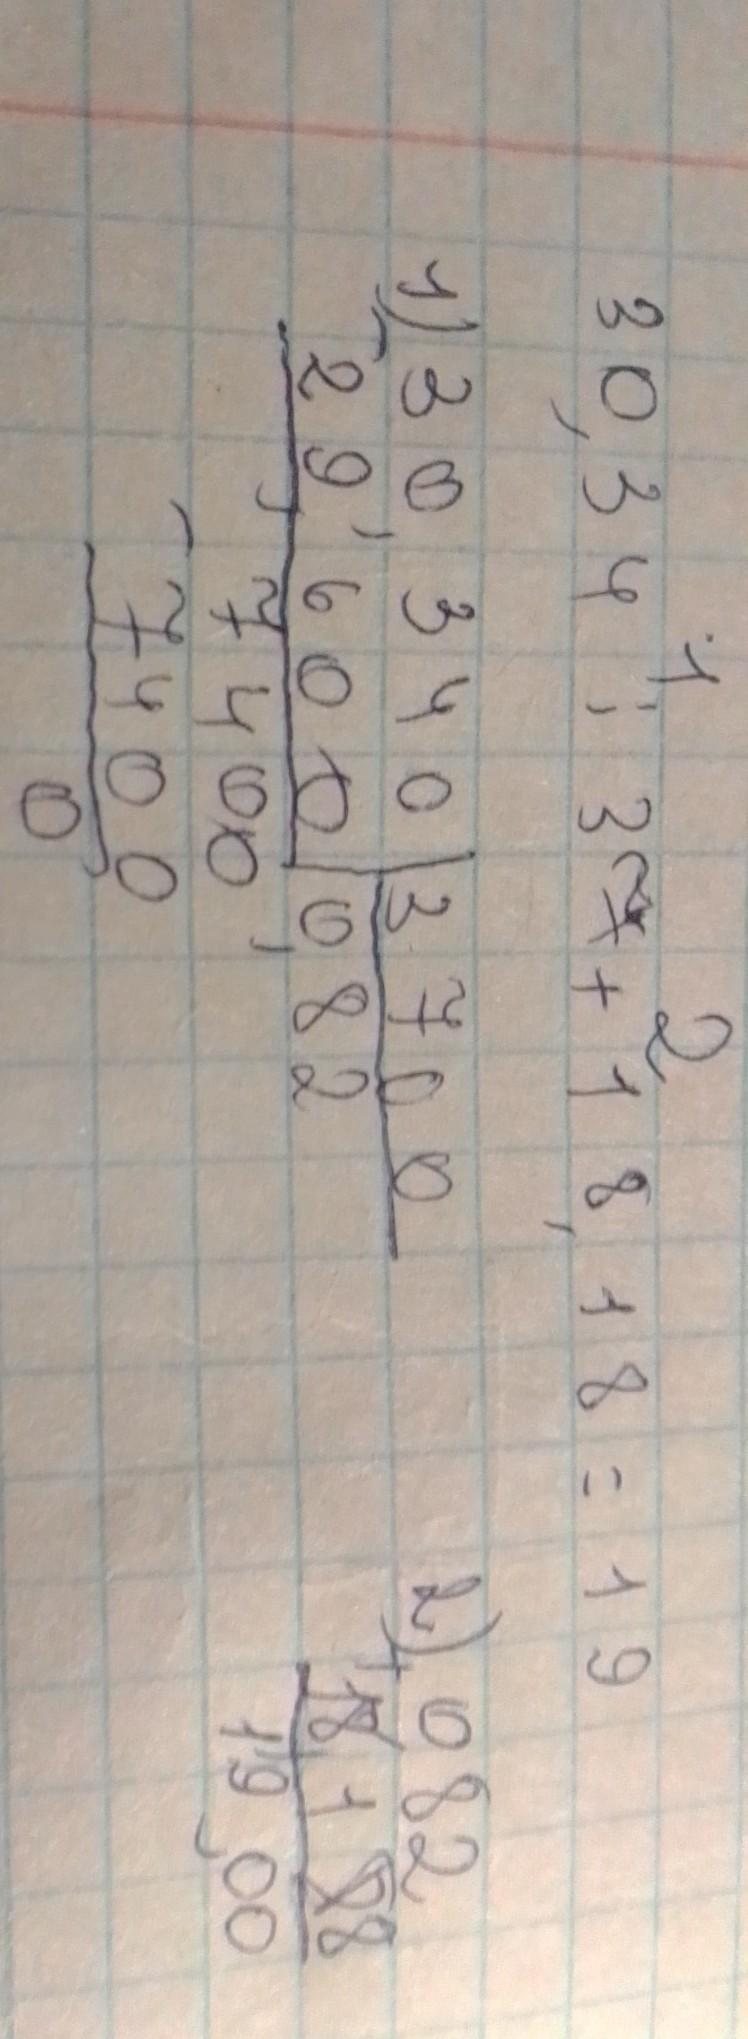 1 2
30,34:37+18,18=19
1) 30,340 | 3700
- 29,600 | 0,82
7400
- 7400
0
2) 082
+ 18 1 88
19,00